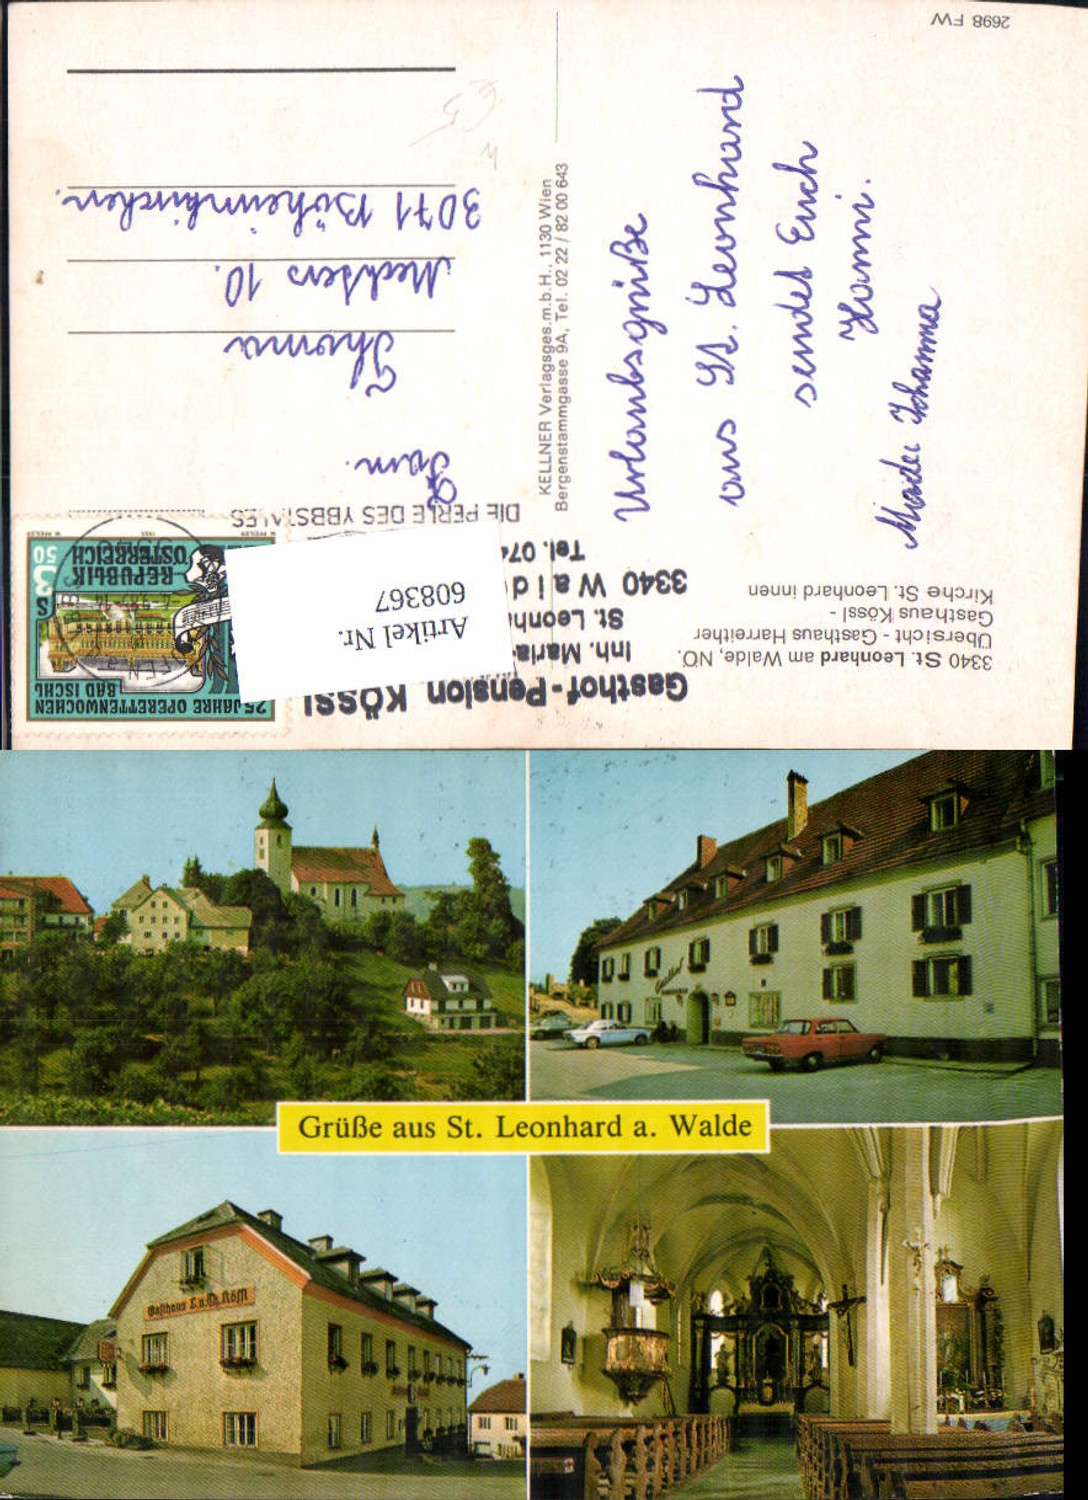 2698 FW
Urlaubsgrüße
aus St. Leonhard
sendet Euch
Hanni.
Maider Johanna
KELLNER Verlagsges.m.b.H., 1130 Wien
Bergenstammgasse 9A, Tel. 02 22 / 82 00 643
Gasthof-Pension KÖSSL
Inh. Maria
St. Leonh
3340 Waid
Tel. 074
DIE PERLE DES YBBSTALES
3340 St. Leonhard am Walde, NÖ.
Übersicht - Gasthaus Harreither
Gasthaus Kössl -
Kirche St. Leonhard innen
25 JAHRE OPERETTENWOCHEN
BAD ISCHL
S 3 50
REPUBLIK
ÖSTERREICH
Artikel Nr.
608367
Fam.
Thoma
Mechters 10.
3071 Böheimkirchen.
Gasthof
Grüße aus St. Leonhard a. Walde
Gasthaus L. u. M. Kößl